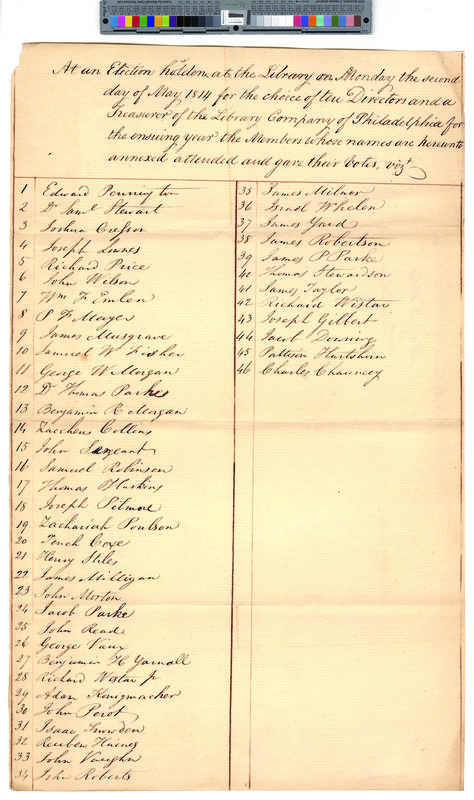 At an Election holden at the Library on Monday the second
day of May 1814 for the choice of ten Directors and a
Treasurer of the Library Company of Philadelphia for
the ensuing year the Members whose names are hereunto
annexed attended and gave their Votes, vizt
1 Edward Pennington
2 Dr Saml Stewart
3 Joshua Cresson
4 Joseph Lownes
5 Richard Price
6 John Wilson
7 Wm F Emlen
8 P F Mayer
9 James Musgrave
10 Samuel W Fisher
11 George W Morgan
12 Dr Thomas Parke
13 Benjamin R Morgan
14 Zaccheus Collins
15 John Sergeant
16 Samuel Robinson
17 Thomas Huskins
18 Joseph Pilmore
19 Zachariah Poulson
20 Tench Coxe
21 Henry Stiles
22 James Milligan
23 John Morton
24 Jacob Parke
25 John Read
26 George Vaux
27 Benjamin H Yarnall
28 Richard Wistar Jr
29 Adam Konigmacher
30 John Perot
31 Isaac Snowden
32 Reuben Haines
33 John Vaughn
34 John Roberts
35 James Milnor
36 Israel Whelen
37 James Yard
38 James Robertson
39 James P Parke
40 Thomas Stewardson
41 James Taylor
42 Richard Wistar
43 Joseph Gilbert
44 Jacob Downing
45 Pattison Hartshorn
46 Charles Chauncey